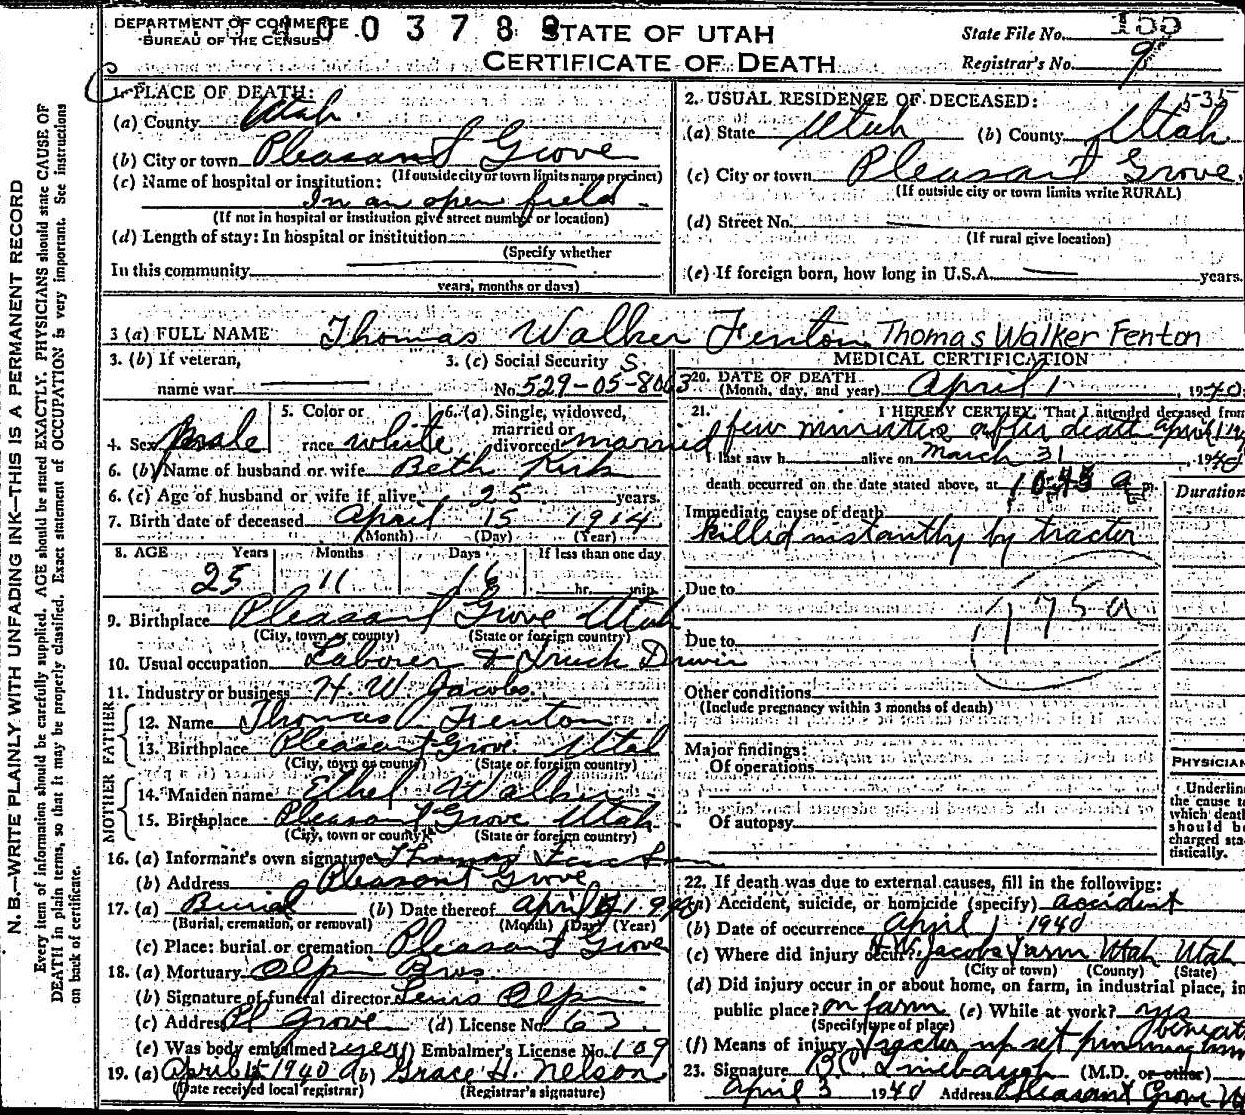 DEPARTMENT OF COMMERCE
BUREAU OF THE CENSUS
400378
STATE OF UTAH
CERTIFICATE OF DEATH
State File No. 155
Registrar's No. 9
N. B.—WRITE PLAINLY WITH UNFADING INK—THIS IS A PERMANENT RECORD
Every item of information should be carefully supplied. AGE should be stated EXACTLY. PHYSICIANS should state CAUSE OF
DEATH in plain terms, so that it may be properly classified. Exact statement of OCCUPATION is very important. See instructions
on back of certificate.
1. PLACE OF DEATH:
(a) County Utah
(b) City or town Pleasant Grove
(If outside city or town limits name precinct)
(c) Name of hospital or institution:
In an open field
(If not in hospital or institution give street number or location)
(d) Length of stay: In hospital or institution
(Specify whether
In this community
years, months or days)
2. USUAL RESIDENCE OF DECEASED:
(a) State Utah (b) County Utah
(c) City or town Pleasant Grove
(If outside city or town limits write RURAL)
(d) Street No.
(If rural give location)
(e) If foreign born, how long in U.S.A. years.
3 (a) FULL NAME Thomas Walker Fenton Thomas Walker Fenton
3. (b) If veteran,
name war
3. (c) Social Security
No. 529-05-8063
4. Sex Male
5. Color or
race white
6. (a) Single, widowed,
married or
divorced married
6. (b) Name of husband or wife Beth Kirk
6. (c) Age of husband or wife if alive 25 years.
7. Birth date of deceased April 15 1914
(Month) (Day) (Year)
8. AGE Years Months Days If less than one day
25 11 16 hr. min.
9. Birthplace Pleasant Grove Utah
(City, town or county) (State or foreign country)
10. Usual occupation Laborer & Truck Driver
11. Industry or business H. W. Jacobs
FATHER
12. Name Thomas Fenton
13. Birthplace Pleasant Grove Utah
(City, town or county) (State or foreign country)
MOTHER
14. Maiden name Ethel Walker
15. Birthplace Pleasant Grove Utah
(City, town or county) (State or foreign country)
16. (a) Informant's own signature Thomas Fenton
(b) Address Pleasant Grove
17. (a) Burial (b) Date thereof April 1940
(Burial, cremation, or removal) (Month) (Day) (Year)
(c) Place: burial or cremation Pleasant Grove
18. (a) Mortuary Olpin Bros.
(b) Signature of funeral director Lewis Olpin
(c) Address Pl Grove (d) License No. 63
(e) Was body embalmed? yes (f) Embalmer's License No. 109
19. (a) April 1940 (b) Grace H. Nelson
(Date received local registrar) (Registrar's signature)
MEDICAL CERTIFICATION
20. DATE OF DEATH
(Month, day, and year) April 1, 1940
21. I HEREBY CERTIFY, That I attended deceased from
few minutes after death April 1 19
I last saw h alive on March 31, 1940
death occurred on the date stated above, at 10:45 a m.
Duration
Immediate cause of death
killed instantly by tractor
Due to
175a
Due to
Other conditions
(Include pregnancy within 3 months of death)
Major findings:
Of operations
Of autopsy
PHYSICIAN
Underline
the cause to
which death
should be
charged sta-
tistically.
22. If death was due to external causes, fill in the following:
(a) Accident, suicide, or homicide (specify) accident
(b) Date of occurrence April 1 1940
(c) Where did injury occur? H. W. Jacobs Farm Utah Utah
(City or town) (County) (State)
(d) Did injury occur in or about home, on farm, in industrial place, in
public place? on farm (e) While at work? yes
(Specify type of place)
(f) Means of injury Tractor up set pinning him beneath
23. Signature (M.D. or other)
April 3 1940 Address Pleasant Grove